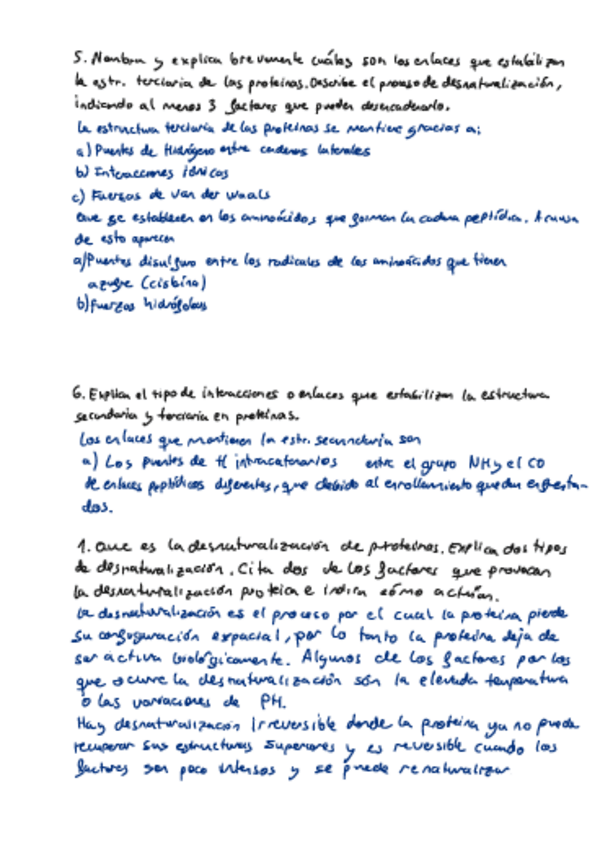 5. Nombra y explica brevemente cuáles son los enlaces que estabilizan
la estr. terciaria de las proteínas. Describe el proceso de desnaturalización,
indicando al menos 3 factores que pueden desencadenarlo.
La estructura terciaria de las proteínas se mantiene gracias a:
a) Puentes de Hidrógeno entre cadenas laterales
b) Interacciones iónicas
c) Fuerzas de Van der Waals
Que se establecen en los aminoácidos que forman la cadena peptídica. A causa
de esto aparecen
a) Puentes disulfuro entre los radicales de los aminoácidos que tienen
azufre (cisteína)
b) Fuerzas hidrófobas
6. Explica el tipo de interacciones o enlaces que estabilizan la estructura
secundaria y terciaria en proteínas.
Los enlaces que mantienen la estr. secundaria son
a) Los puentes de H intracatenarios entre el grupo NH y el CO
de enlaces peptídicos diferentes, que debido al enrollamiento quedan enfrenta-
dos.
1. Que es la desnaturalización de proteínas. Explica dos tipos
de desnaturalización. Cita dos de los factores que provocan
la desnaturalización proteica e indica cómo actúan.
La desnaturalización es el proceso por el cual la proteína pierde
su configuración espacial, por lo tanto la proteína deja de
ser activa biológicamente. Algunos de los factores por los
que ocurre la desnaturalización són la elevada temperatura
o las variaciones de PH.
Hay desnaturalización Irreversible donde la proteína ya no puede
recuperar sus estructuras superiores y es reversible cuando los
factores son poco intensos y se puede renaturalizar